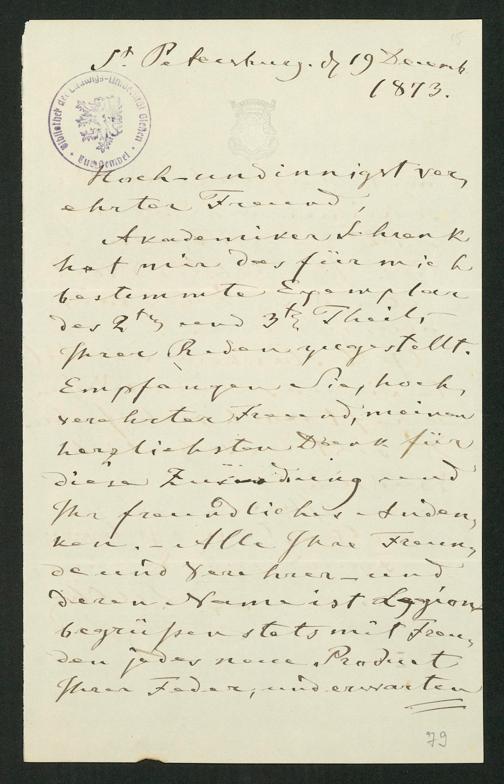 St. Petersburg. d. 19 Decemb.
1873.
Bibliothek der Ludwigs-Universität Giessen
Hoch- und innigst ver,
ehrter Freund,
Akademiker Schrenk
hat mir das für mich
bestimmte Exemplar
des 2ten und 3ten Theils
Ihrer Reden zugestellt.
Empfangen Sie, hoch,
verehrter Freund, meinen
herzlichsten Dank für
diese Zusendung und
Ihr freundliches Anden,
ken. – Alle Ihre Freun,
de und Verehrer – und
deren Name ist Legion
begrüßen stets mit Freu,
den jedes neue Product
Ihrer Feder, und erwarten
79